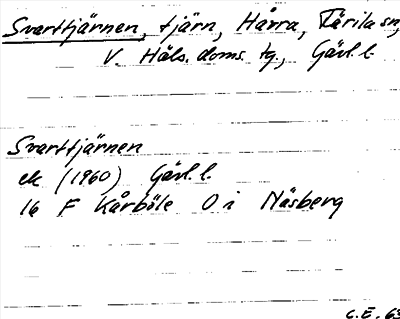 Svarttjärnen, tjärn, Hårra, Färila sn,
V. Häls. doms. tg., Gävl. l.
Svarttjärnen
ek (1960) Gävl. l.
16 F Kårböle O i Näsberg
C.E. 63